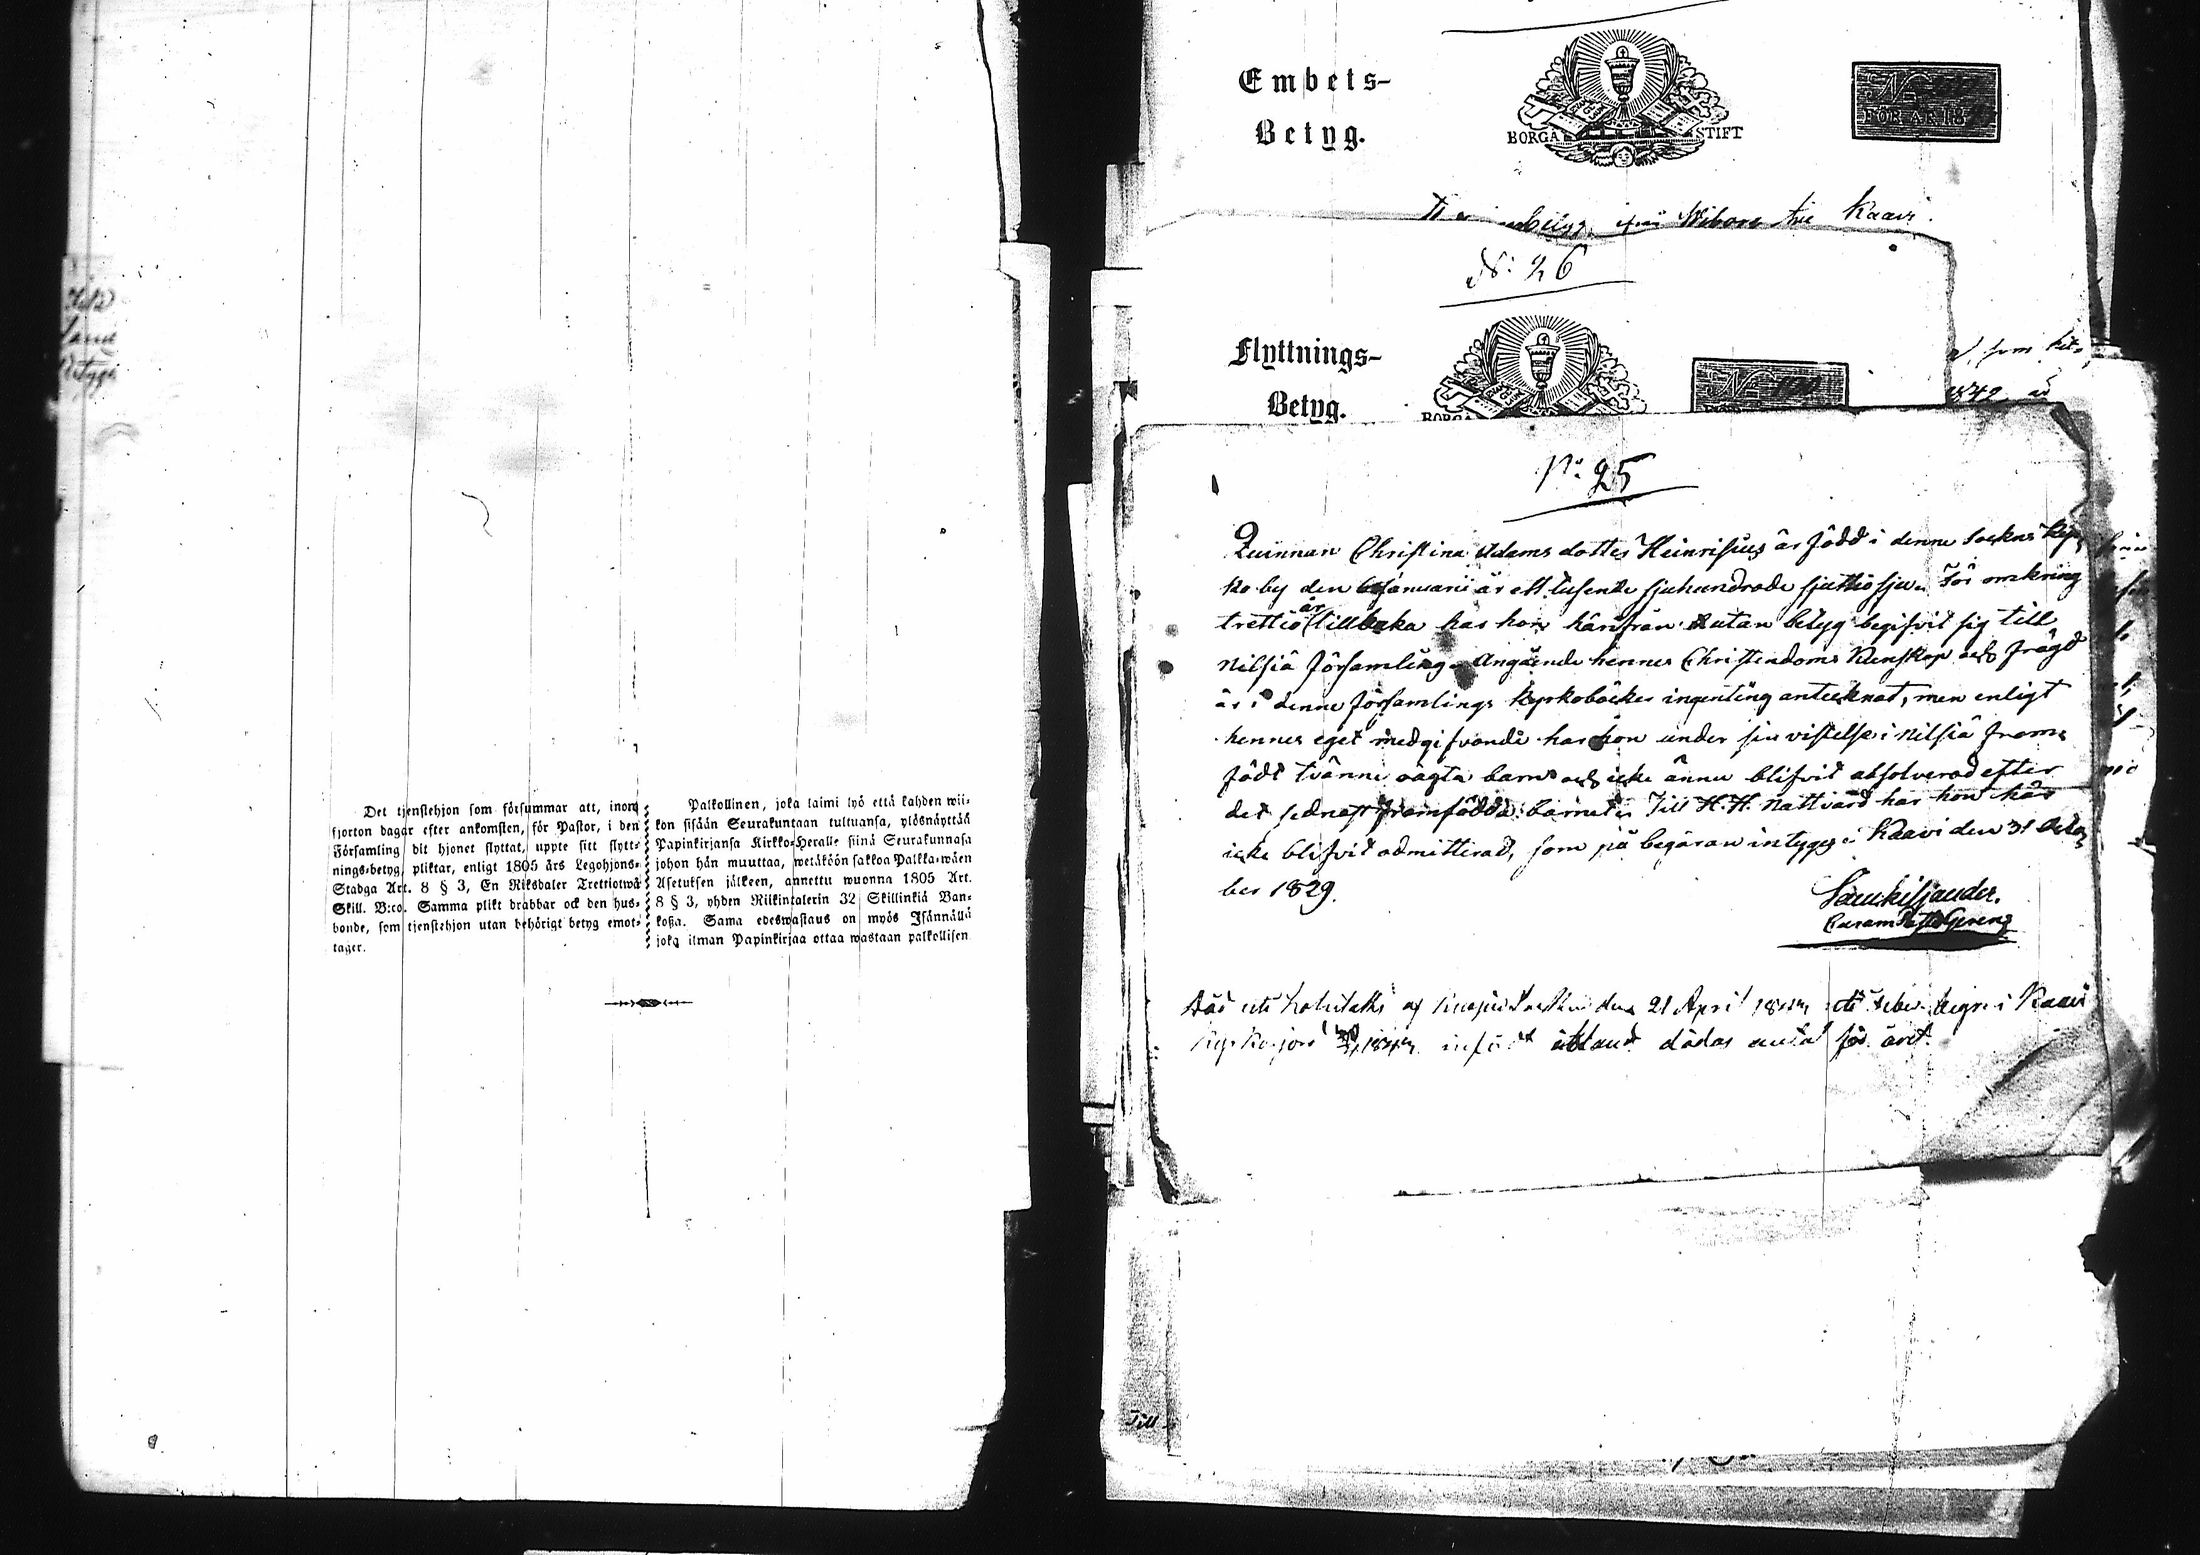 Det tjenstehjon som försummar att, inom
fjorton dagar efter ankomsten, för Pastor, i den
Församling dit hjonet flyttat, uppte sitt flytt-
nings-betyg, pliktar, enligt 1805 års Legohjons-
Stadga Art. 8 § 3, En Riksdaler Trettiotwå
Skill. B:co. Samma plikt drabbar ock den hus-
bonde, som tjenstehjon utan behörigt betyg emot-
tager.
Palkollinen, joka laimi lyö että kahden wii-
kon sisään Seurakuntaan tultuansa, ylösnäyttää
Papinkirjansa Kirkko-Heralle siinä Seurakunnasa
johon hän muuttaa, wetäköön sakkoa Palkka-wäen
Asetuksen jälkeen, annettu wuonna 1805 Art.
8 § 3, yhden Riikintalerin 32 Skillinkiä Ban-
kosa. Sama edeswastaus on myös Isännällä
joka ilman Papinkirjaa ottaa wastaan palkollisen
Embets-
Betyg.
BORGÅ STIFT
FÖR ÅR 18
Kaavi.
N: 26
Flyttnings-
Betyg.
N: 25
Quinnan Christina Adams dotter Heinrisius är född i denne Sockns
ko by den Januarii år ett tusende sjuhundrade sjuttiosju. För omkring
trettio år tillbaka har hon härifrån utan betyg begifvit sig till
Nilsiä församling. Angående hennes Christendoms Kunskap och frägd
är i denne församlings Kyrkoböcker ingenting antecknat, men enligt
hennes eget medgifvande har hon under sin vistelse i Nilsiä fram-
födt tvänne oägta barn och icke ännu blifvit absolverad efter
det sednast framfödda barnet. Till H. H. Nattvard har hon här
icke blifvit admitterad, som på begäran intygas. Kaavi den 31 Octo-
ber 1829.
den 21 April
i Kaavi
ibland dödas antal för året.
Till